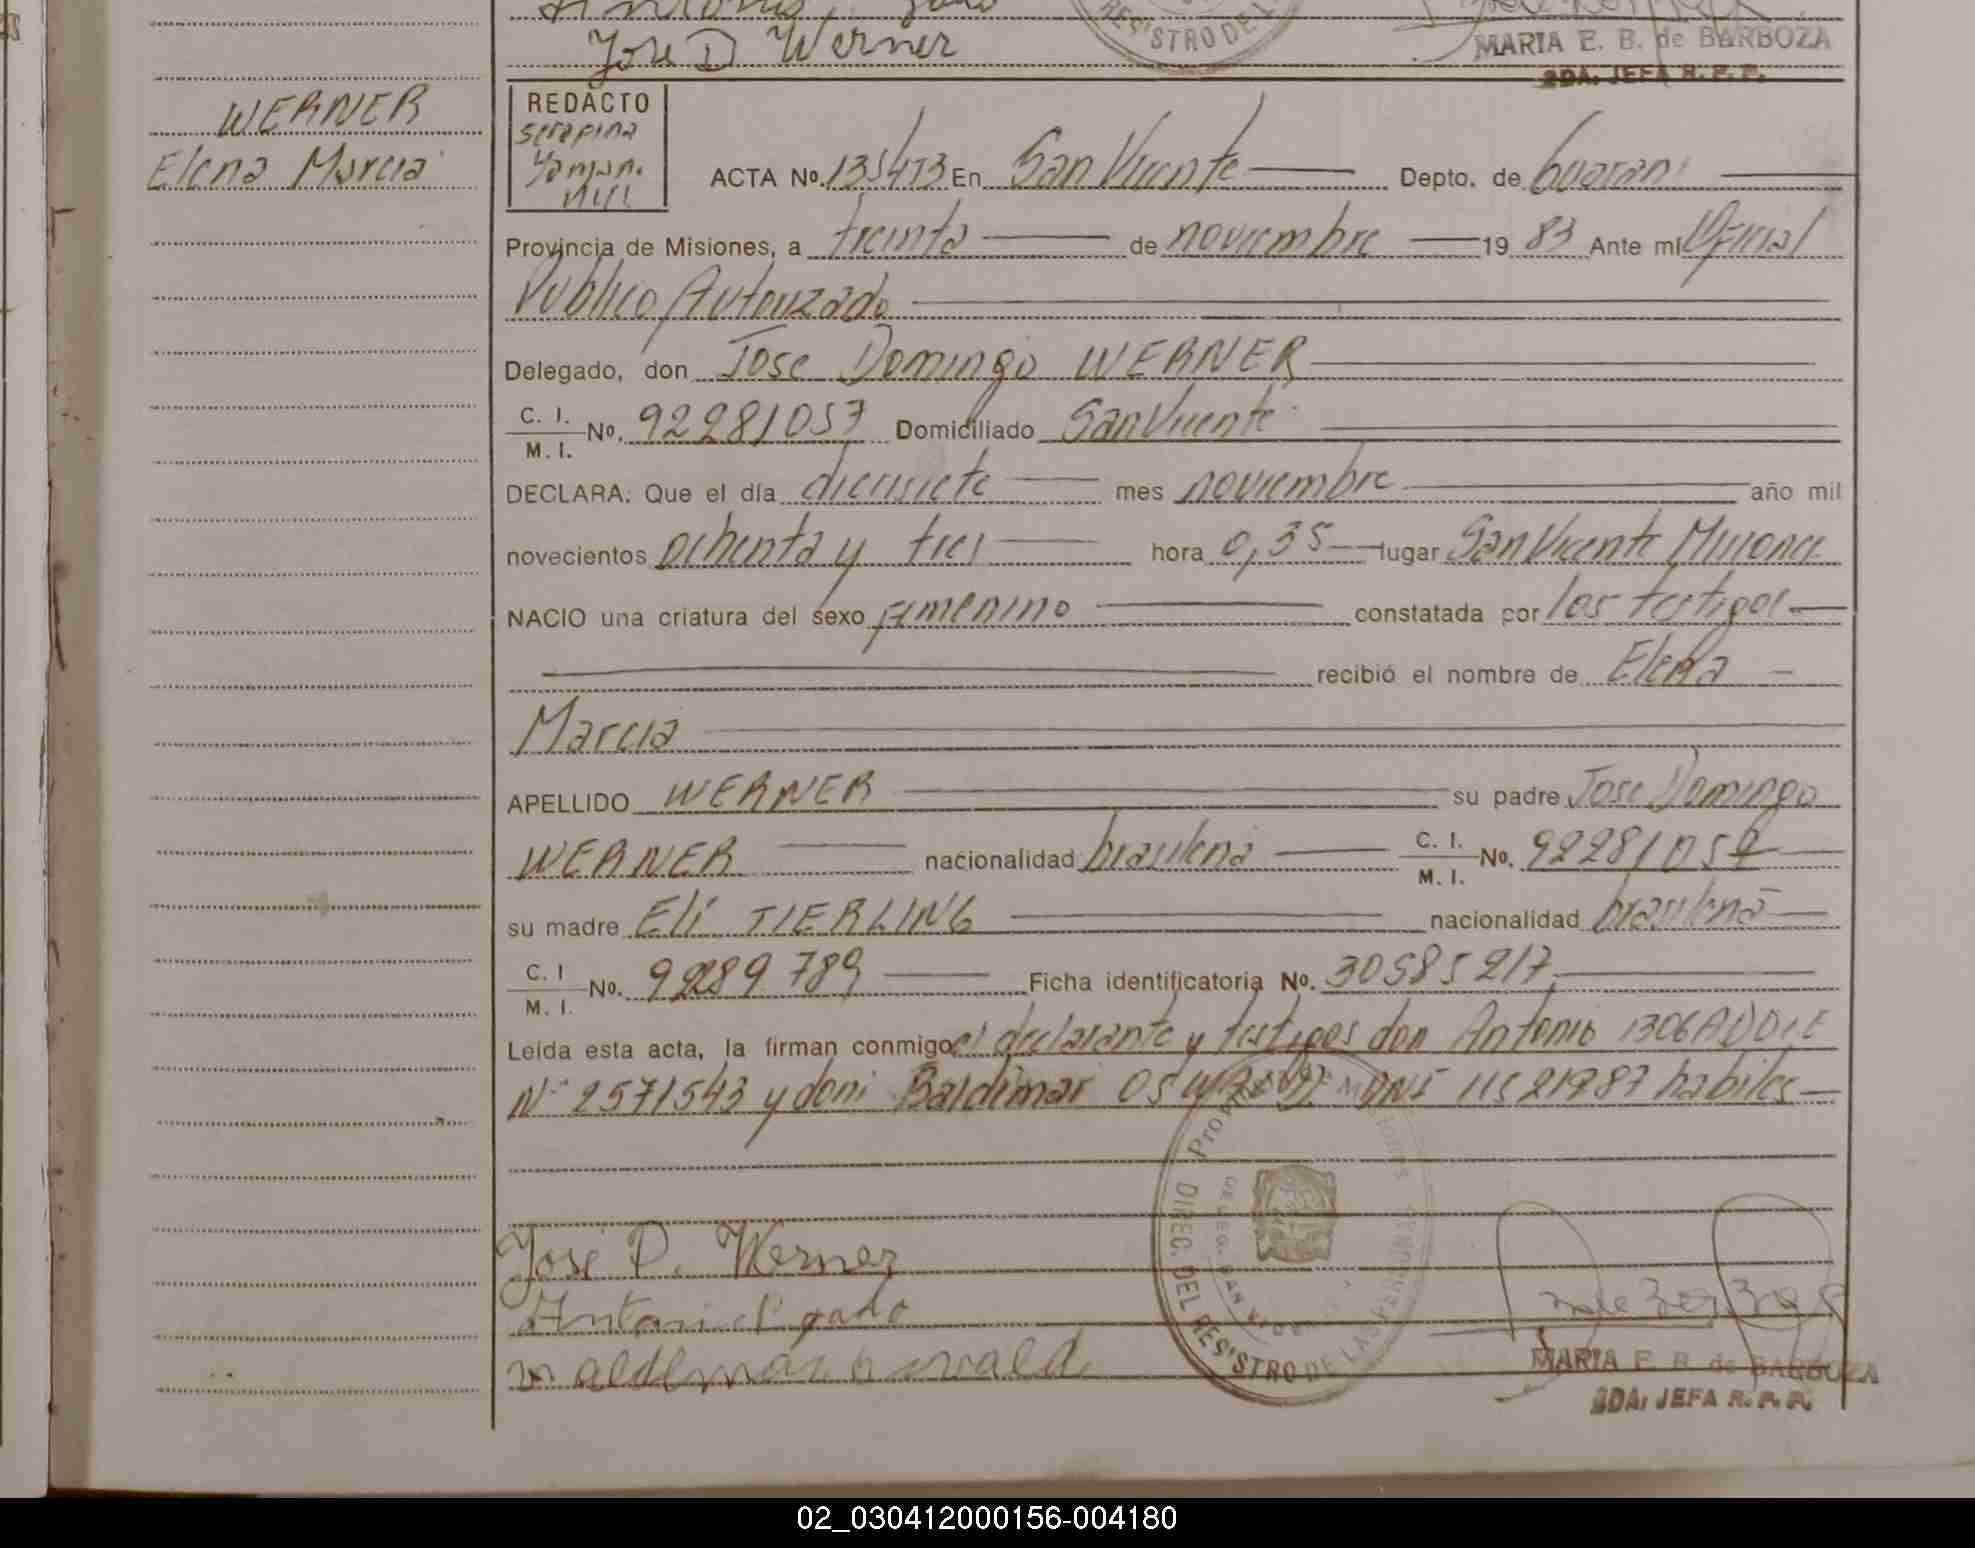 Jose D Werner
REGISTRO DE L
MARIA E. B. de BARBOZA
2DA. JEFA R. P. P.
WERNER
Elena Marcia
REDACTO
Serapina
ACTA No. 135/473 En San Vicente Depto. de Guarani
Provincia de Misiones, a treinta de noviembre 19 83 Ante mí Oficial
Publico Autorizado
Delegado, don Jose Domingo WERNER
C. I.
M. I. No. 92281057 Domiciliado San Vicente
DECLARA: Que el día diecisiete mes noviembre año mil
novecientos ochenta y tres hora 0,35 lugar San Vicente Misiones
NACIO una criatura del sexo femenino constatada por los testigos
recibió el nombre de Elena
Marcia
APELLIDO WERNER su padre Jose Domingo
WERNER nacionalidad brasilena C. I.
M. I. No. 92281057
su madre Eli TIERLING nacionalidad brasilena
C. I
M. I. No. 92289789 Ficha identificatoria No. 30585217
Leída esta acta, la firman conmigo el declarante y testigos don Antonio
Nº 2571543 y don Baldimar DNI 11521787 habiles
Provincia de Misiones
DIREC. DEL REGISTRO DE LAS PERSONAS
DELEG. SAN VICENTE
José D. Werner
waldemar oswald
MARIA E. B. de BARBOZA
2DA. JEFA R. P. P.
02_030412000156-004180